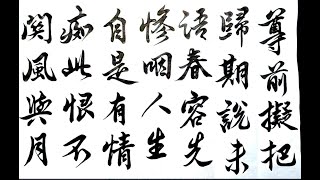 尊前擬把
歸期說未
语春容先
慘咽人生
自是有情
痴此恨不
関風與月